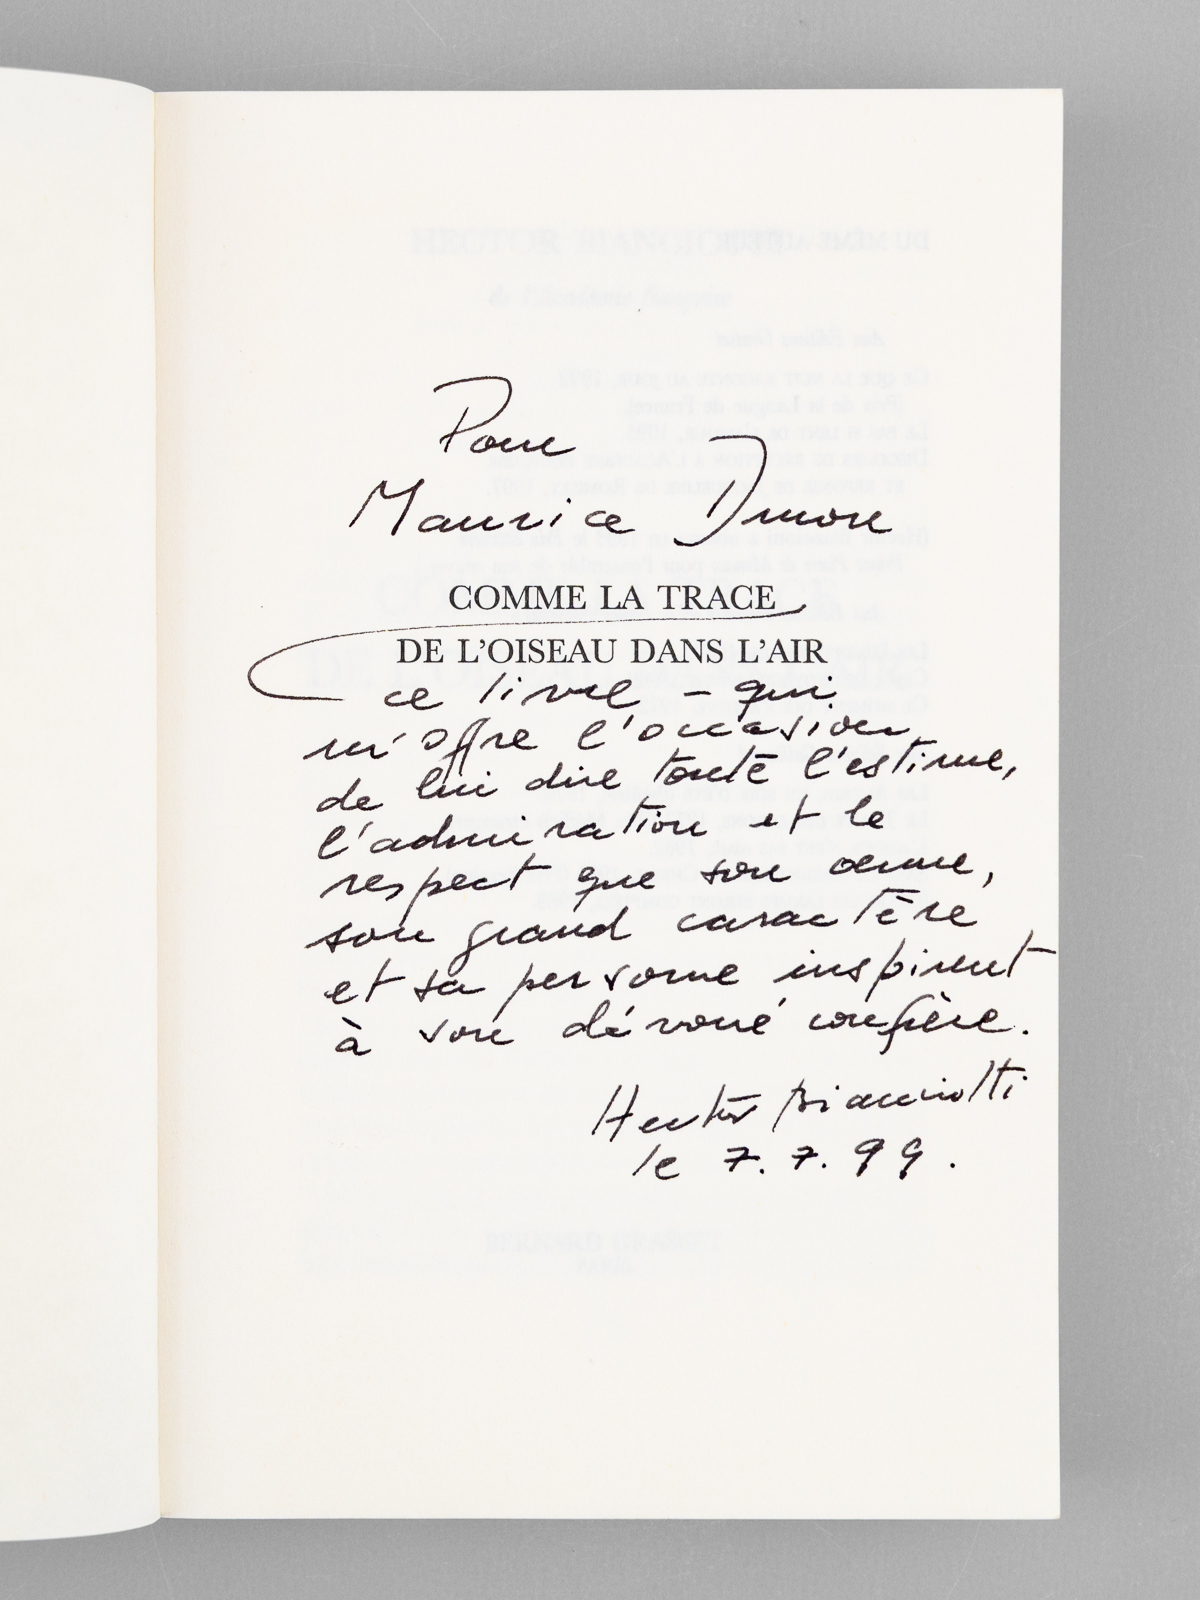 Pour
Maurice Druon
COMME LA TRACE
DE L'OISEAU DANS L'AIR
ce livre – qui
m'offre l'occasion
de lui dire toute l'estime,
l'admiration et le
respect que son œuvre,
son grand caractère
et sa personne inspirent
à son dévoué confrère.
Hector Bianciotti
le 7.7.99.